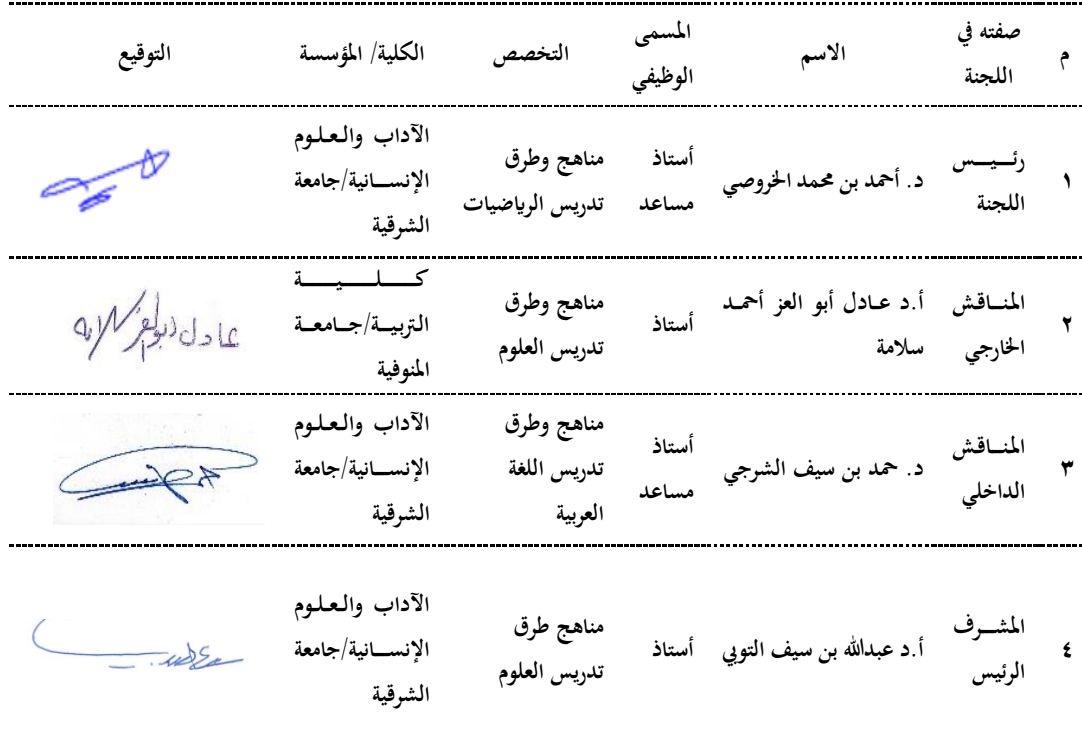 م
صفته في
اللجنة
الاسم
المسمى
الوظيفي
التخصص
الكلية/ المؤسسة
التوقيع
١
رئيس
اللجنة
د. أحمد بن محمد الخروصي
أستاذ
مساعد
مناهج وطرق
تدريس الرياضيات
الآداب والعلوم
الإنسانية/جامعة
الشرقية
٢
المناقش
الخارجي
أ.د عادل أبو العز أحمد
سلامة
أستاذ
مناهج وطرق
تدريس العلوم
كلية
التربية/جامعة
المنوفية
عادل أبو العز سلامه
٣
المناقش
الداخلي
د. حمد بن سيف الشرجي
أستاذ
مساعد
مناهج وطرق
تدريس اللغة
العربية
الآداب والعلوم
الإنسانية/جامعة
الشرقية
٤
المشرف
الرئيس
أ.د عبدالله بن سيف التوبي
أستاذ
مناهج طرق
تدريس العلوم
الآداب والعلوم
الإنسانية/جامعة
الشرقية